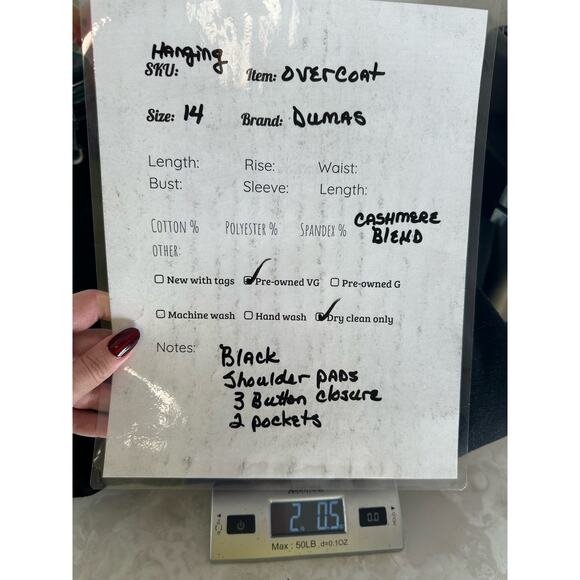 Hanging
SKU: Item: OVERCOAT
Size: 14 Brand: DUMAS
Length: Rise: Waist:
Bust: Sleeve: Length:
COTTON % POLYESTER % SPANDEX % CASHMERE BLEND
OTHER:
New with tags Pre-owned VG Pre-owned G
Machine wash Hand wash Dry clean only
Notes: Black
Shoulder PADS
3 Button closure
2 pockets
2 0.5
0.0
HOLD
Max : 50LB d=0.1OZ